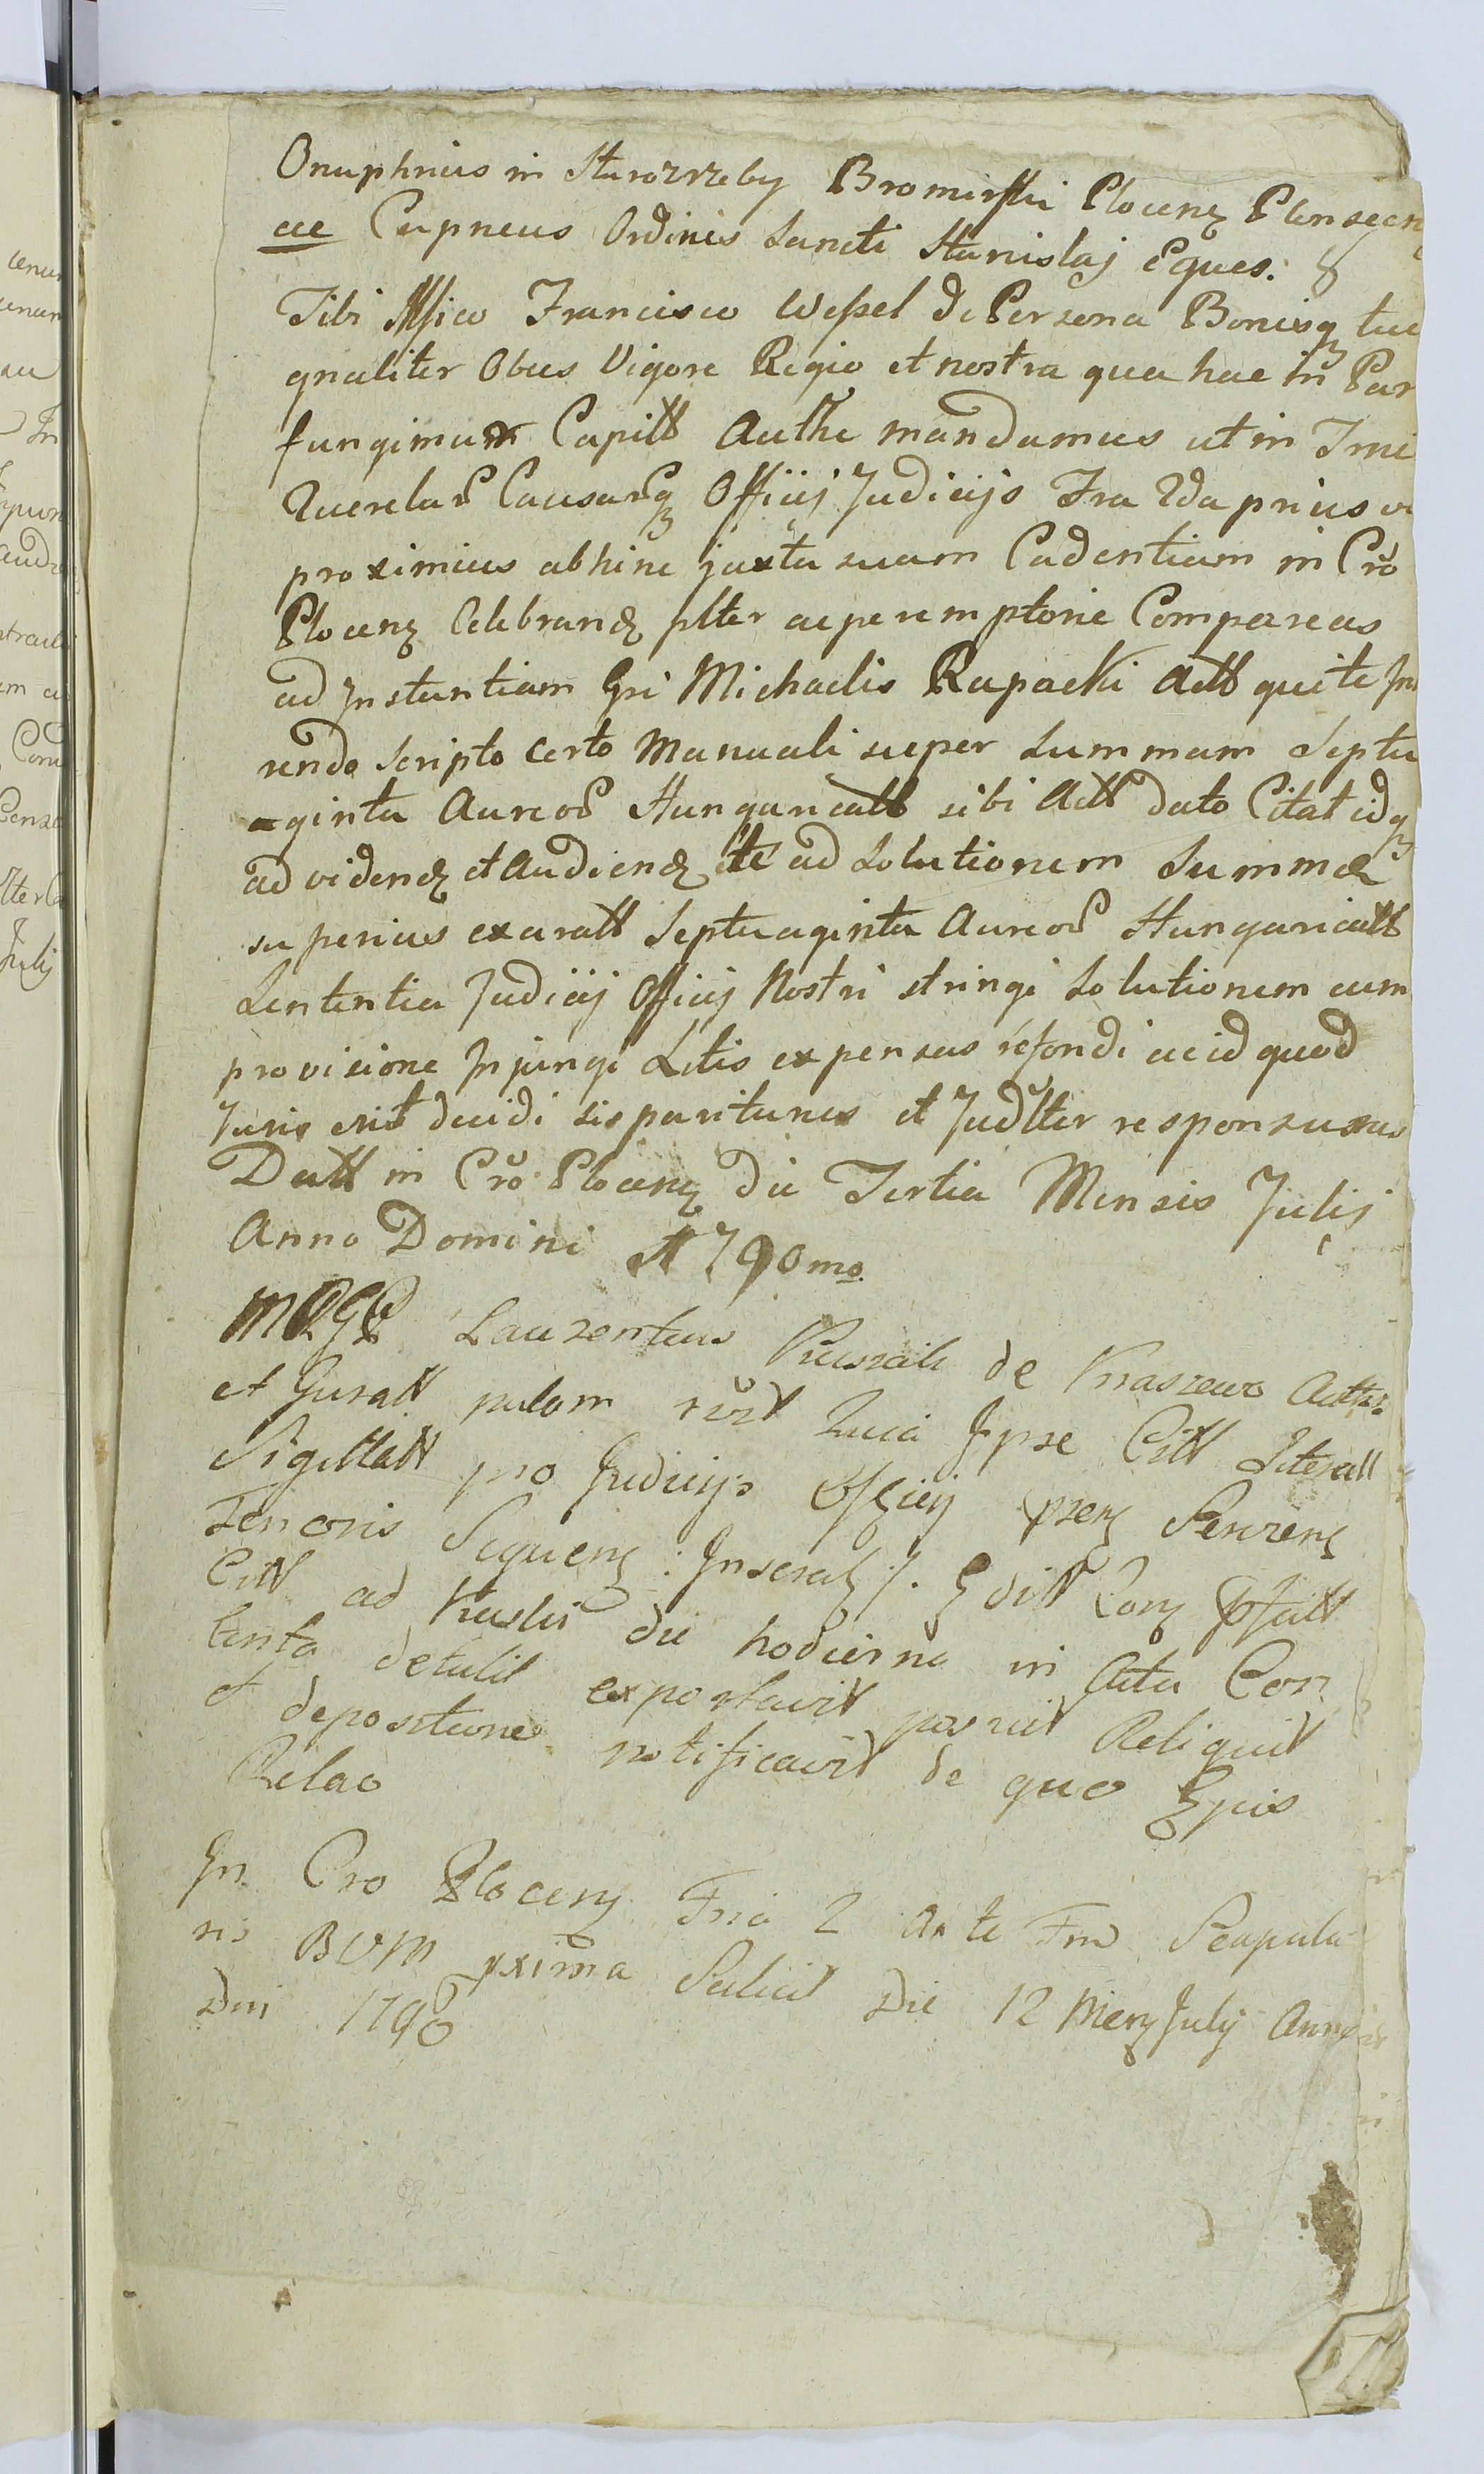 Onuphrius in Starozrzeby Bromirski Plocenz Plonscen
ac Capneus Ordinis Sancti Stanislaj Eques.
Tibi Mfico Francisco Wessel de Persona Bonisqz tui
gnaliter Obus Vigore Regio et nostra qua hac in Par
fungimur Capitt Authe mandamus ut in Tmi
Querelar Causarqz Officij Judicijs Fra 2da prius vi
proximius abhinc juxta suam Cadentiam in Cro
Plocenz Celebrandz plter ac peremptorie Compareas
ad Instantiam Gsi Michaelis Rapacki Actt qui te In
rendo Scripto certo Manuali super Summam Septu
aginta Aureor Hungaricatt sibi Actt dato Citat idqz
ad videndz et Audiendz te ad Solutionem Summæ
superius exaratt Septuaginta Aureor Hungaricatt
Sententia Judicij Officij Nostri stringi Solutionem cum
provisione Injungi Litis expensas refondi ac id quod
Juris erit decidi sis pariturus et Judlter responsurus
Datt in Cro Plocenz die Tertia Mensis Julij
Anno Domini 1790mo.
Laurentius de Kraszewo Auth
et Juratt palam rozt Quia Ipse Citt Literatt
Sigillatt pro Judicijs Officij przenz Servienz
Tenoris Sequenz: Inseratz /. Editt
Citt ad die hodierna in Acta Con
tenta detulit exportavit posuit Reliquit
et depositione notificavit de quo Epis
Relao
In Cro Plocenz Fria 2 Ante Fm Scapula
ris BVM pxima Die 12 Menz Julij Anno
Dni 1790